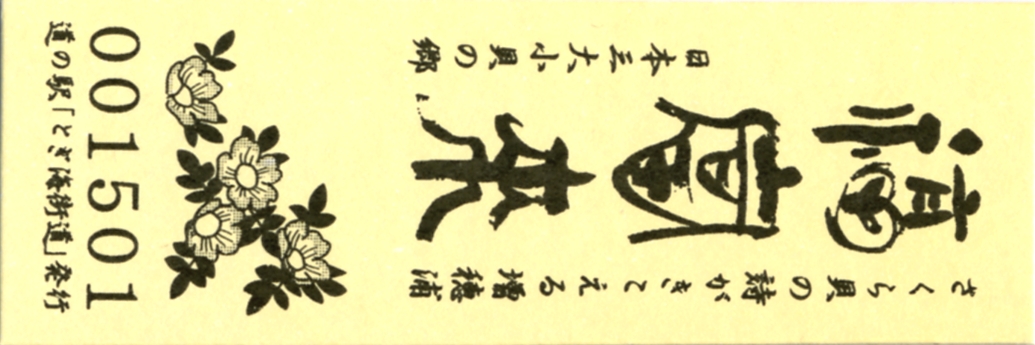 さくら貝の詩がきこえる増穂浦
福富来
日本三大小貝の郷
001501
道の駅「とぎ海街道」発行